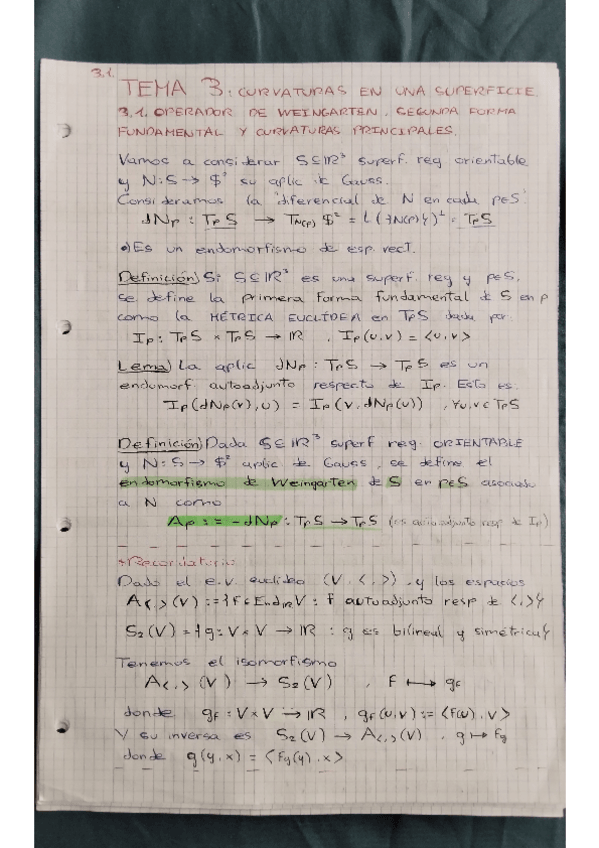 3.1.
TEMA 3: CURVATURAS EN UNA SUPERFICIE.
3.1. OPERADOR DE WEINGARTEN. SEGUNDA FORMA
FUNDAMENTAL Y CURVATURAS PRINCIPALES.
Vamos a considerar S⊆ℝ³ superf. reg orientable
y N: S → $² su aplic de Gauss.
Consideramos la diferencial de N en cada p∈S:
dNp : TpS → T_N(p) $² = L({N(p)})^⊥ = TpS
•) Es un endomorfismo de esp. vect.
Definición) Si S⊆ℝ³ es una superf. reg y p∈S,
se define la primera forma fundamental de S en p
como la MÉTRICA EUCLÍDEA en TpS dada por:
Ip : TpS × TpS → ℝ , Ip(u,v) = <u,v>
Lema) La aplic dNp : TpS → TpS es un
endomorf. autoadjunto respecto de Ip. Esto es:
Ip(dNp(v),u) = Ip(v,dNp(u)) , ∀u,v∈TpS
Definición) Dada S⊆ℝ³ superf reg. ORIENTABLE
y N: S → $² aplic de Gauss, se define el
endomorfismo de Weingarten de S en p∈S asociado
a N como
Ap := -dNp : TpS → TpS (es autoadjunto resp de Ip)
Recordatorio
Dado el e.v euclídeo (V, <,>), y los espacios
A<,>(V) := {F∈End_ℝ V : F autoadjunto resp de <,>}
S₂(V) = {g: V×V → ℝ : g es bilineal y simétrica}
Tenemos el isomorfismo
A<,>(V) → S₂(V) , F ↦ g_F
donde g_F : V×V → ℝ , g_F(u,v) := <F(u),v>
Y su inversa es S₂(V) → A<,>(V) , g ↦ F_g
donde g(y,x) = <F_g(y),x>